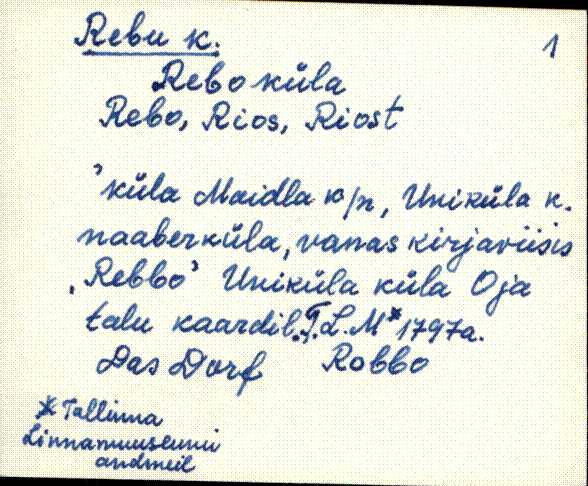 Rebu k.
1
Rebo küla
Rebo, Rios, Riost
'küla Maidla k/n, Uniküla k.
naaberküla, vanas kirjaviisis
,Rebbo' Uniküla küla Oja
talu kaardil. T.L.M* 1797a.
Das Dorf Robbo
* Tallinna
Linnamuuseumi
andmeil